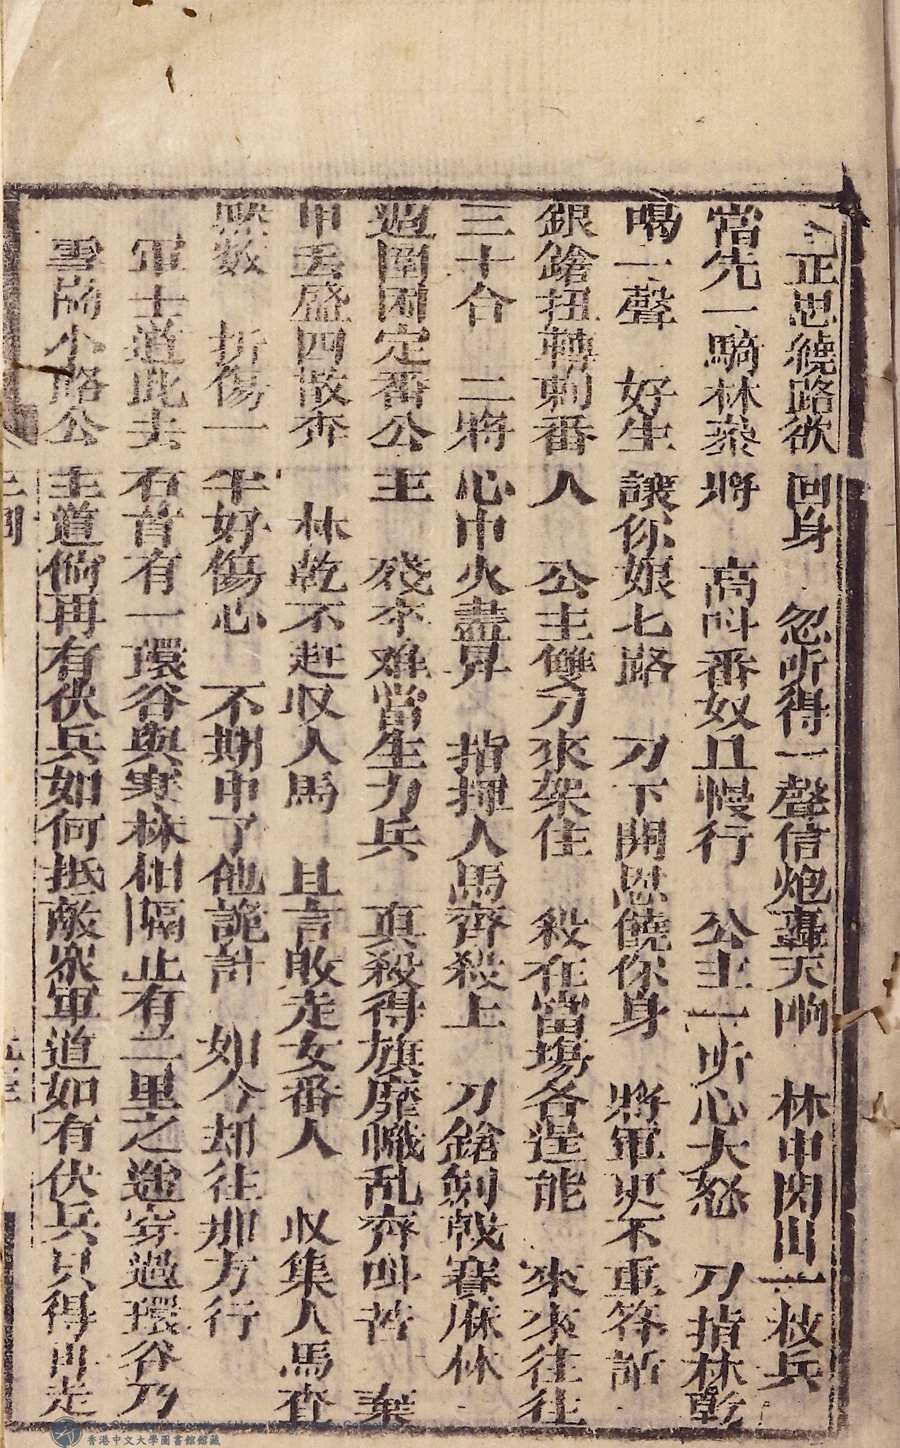 正思繞路欲回身　忽听得一聲信炮轟天响　林中閃出一枝兵
當先一騎林叅將　高叫番奴且慢行　公主一听心大怒　刀指林乾
喝一聲　好生讓你娘七路　刀下開恩饒你身　將軍更不重答話
銀鎗扭轉刺番人　公主雙刀來架住　殺在當塲各逞能　來來往往
三十合　二將心中火盡昇　指揮人馬齊殺上　刀鎗劍戟賽麻林
週圍困定番公主　殘卒难當生力兵　真殺得旗靡幟乱齊叫苦　棄
甲丢盛四散奔　林乾不赶収人馬　且言敗走女番人　収集人馬查
㸃数　折傷一半好傷心　不期中了他詭計　如今却往那方行
軍士道此去右首有一環谷與寒林相隔止有二里之遥穿過環谷乃
雪關小路公主道倘再有伏兵如何抵敵衆軍道如有伏兵只得再走
香港中文大學圖書館館藏